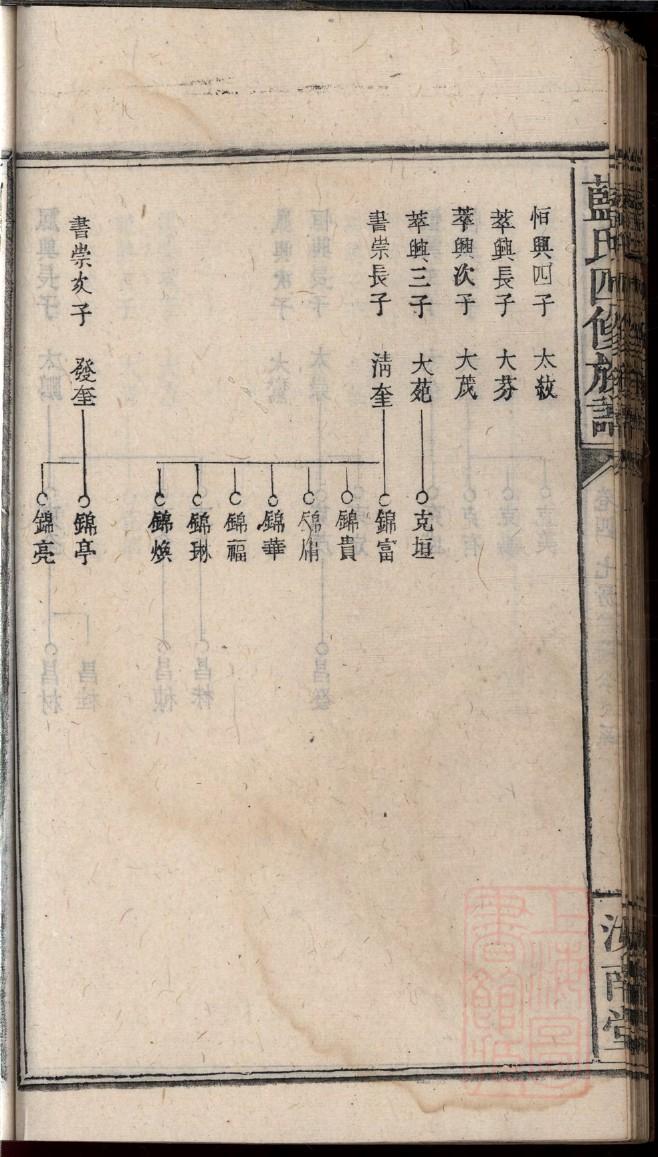 藍氏四修族譜
卷四
汝南堂
恒興四子 大敍
萃興長子 大芬
萃興次子 大茂
萃興三子 大苑
克垣
書崇長子 清奎
錦富
錦貴
錦華
錦福
錦琳
錦煥
書崇次子 發奎
錦亭
錦亮
上海圖書館藏